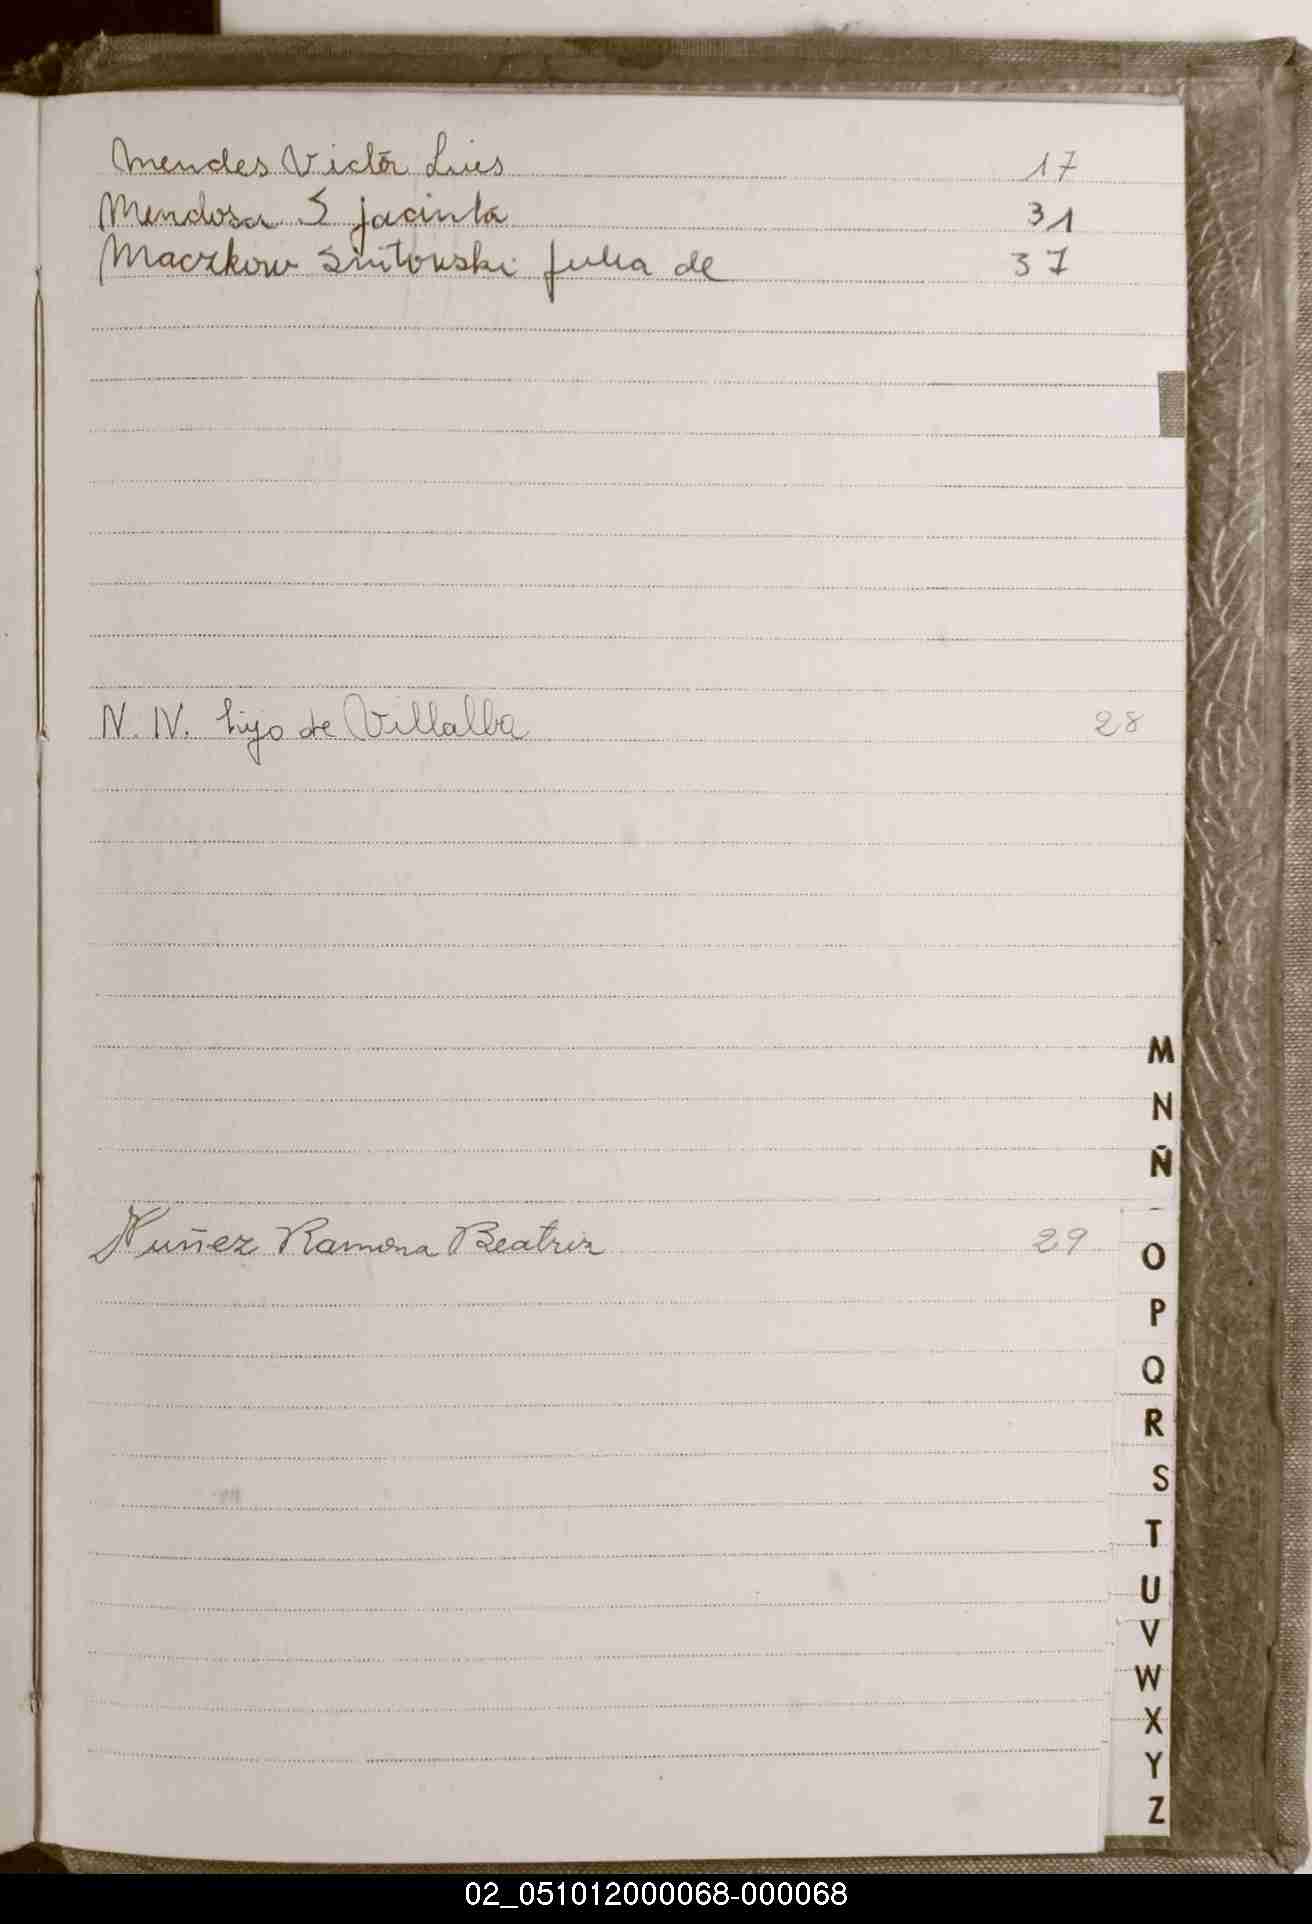 Mendes Victor Luis 17
Mendosa S jacinta 31
Maczkow Snitowski Julia de 37
N. N. hijo de Villalba 28
M
N
Ñ
Nuñez Ramona Beatriz 29
O
P
Q
R
S
T
U
V
W
X
Y
Z
02_051012000068-000068